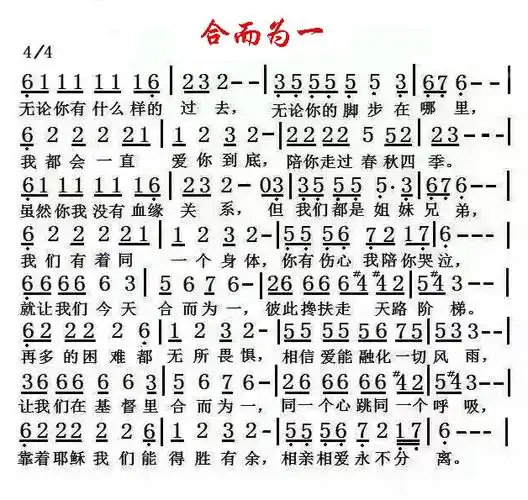 合而为一
4/4
6 1 1 1 1 1 1 6 | 2 2 3 2 - - | 3 5 5 5 5 5 3 | 6 7 6 - - |
无论你有什么样的过去，无论你的脚步在哪里，
6 2 2 2 2 1 | 1 2 3 2 - | 2 2 2 2 2 5 5 2 | 2 3 - - - |
我都会一直爱你到底，陪你走过春秋四季。
6 1 1 1 1 1 1 6 | 2 2 3 2 - 0 3 | 3 5 5 5 5 5 · 3 | 6 7 6 - |
虽然你我没有血缘关系，但我们都是姐妹兄弟，
6 2 2 2 2 1 | 1 2 3 2 - | 5 5 5 5 6 7 2 1 7 | 6 - - - |
我们有着同一个身体，你有伤心我陪你哭泣，
6 6 6 6 6 3 | 5 6 7 6 - | 2 6 6 6 6 #4 #4 2 | 5 #4 3 - - |
就让我们今天合而为一，彼此搀扶走天路阶梯。
6 2 2 2 2 6 | 1 2 3 2 - | 5 5 5 5 5 6 7 5 | 5 3 3 - - |
再多的困难都无所畏惧，相信爱能融化一切风雨，
3 6 6 6 6 6 3 | 5 6 7 6 - | 2 6 6 6 6 #4 2 | 5 #4 3 - - |
让我们在基督里合而为一，同一个心跳同一个呼吸，
6 2 2 2 2 2 1 | 1 2 3 2 - | 5 5 5 5 6 7 2 1 7 | 6 - - - |
靠着耶稣我们能得胜有余，相亲相爱永不分离。